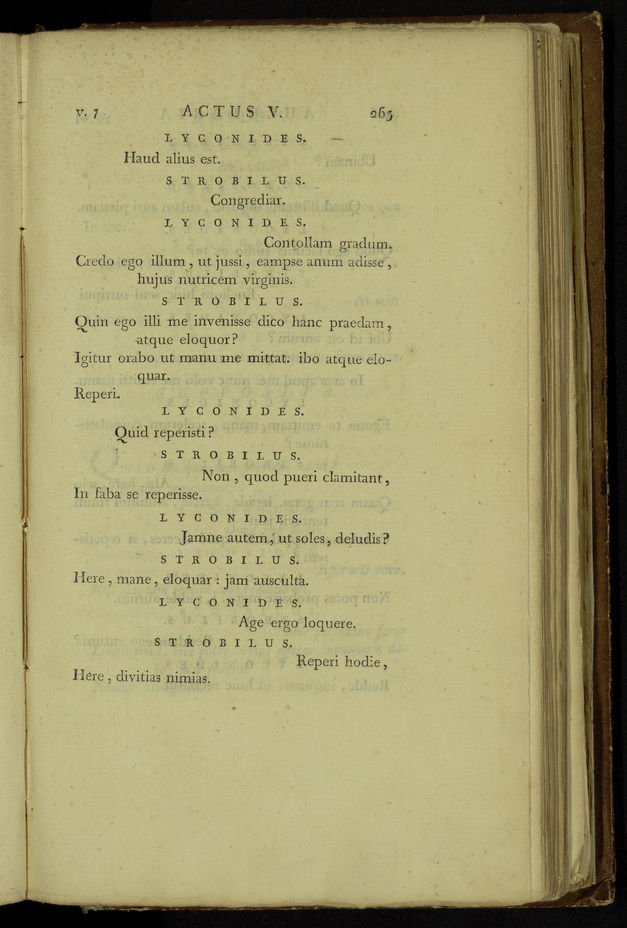 v. 7 ACTUS V. 265
LYCONIDES.
Haud alius est.
STROBILUS.
Congrediar.
LYCONIDES.
Contollam gradum.
Credo ego illum, ut jussi, eampse anum adisse,
hujus nutricem virginis.
STROBILUS.
Quin ego illi me invenisse dico hanc praedam,
atque eloquor?
Igitur orabo ut manu me mittat. ibo atque elo-
quar.
Reperi.
LYCONIDES.
Quid reperisti?
STROBILUS.
Non, quod pueri clamitant,
In faba se reperisse.
LYCONIDES.
Jamne autem, ut soles, deludis?
STROBILUS.
Here, mane, eloquar: jam ausculta.
LYCONIDES.
Age ergo loquere.
STROBILUS.
Reperi hodie,
Here, divitias nimias.